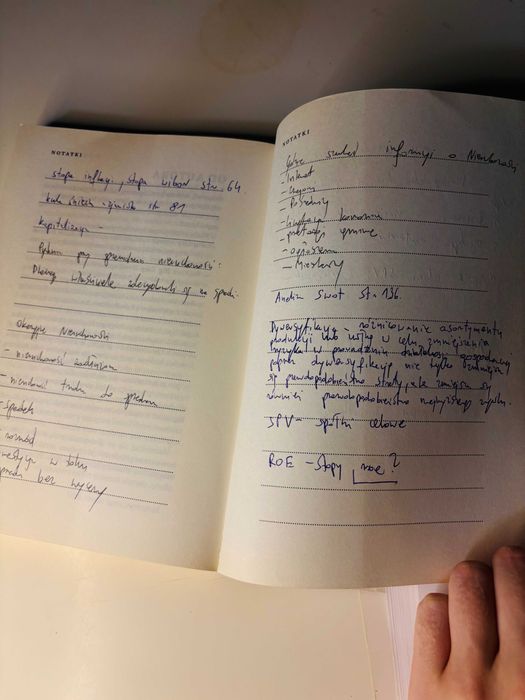 NOTATKI
stopa inflacji, stopa wibor str. 64.
str 81
Kapitalizacja -
Pytania przy sprzedaży nieruchomości:
Dlaczego właściciele zdecydowali się na sprzedaż.
okazyjne Nieruchomości
- nieruchomość zadłużona
- nieruchomość trudna do sprzedania
- spadek
rozwód
w toku
bez wyceny
NOTATKI
Gdzie szukać informacji o Nieruchomości
- Internet
- Pośrednicy
- licytacje komornicze
- przetargi gminne
- ogłoszenia
- Mieszkańcy
Analiza Swot str. 136.
Dywersyfikacja - różnicowanie asortymentu
produkcji lub usług w celu zmniejszenia
ryzyka w prowadzeniu działalności gospodarczej
poprzez dywersyfikację nie tylko zmniejsza
się prawdopodobieństwo straty, ale zmniejsza się
również prawdopodobieństwo najwyższego zysku.
SPV - spółki celowe
ROE - stopy roe?